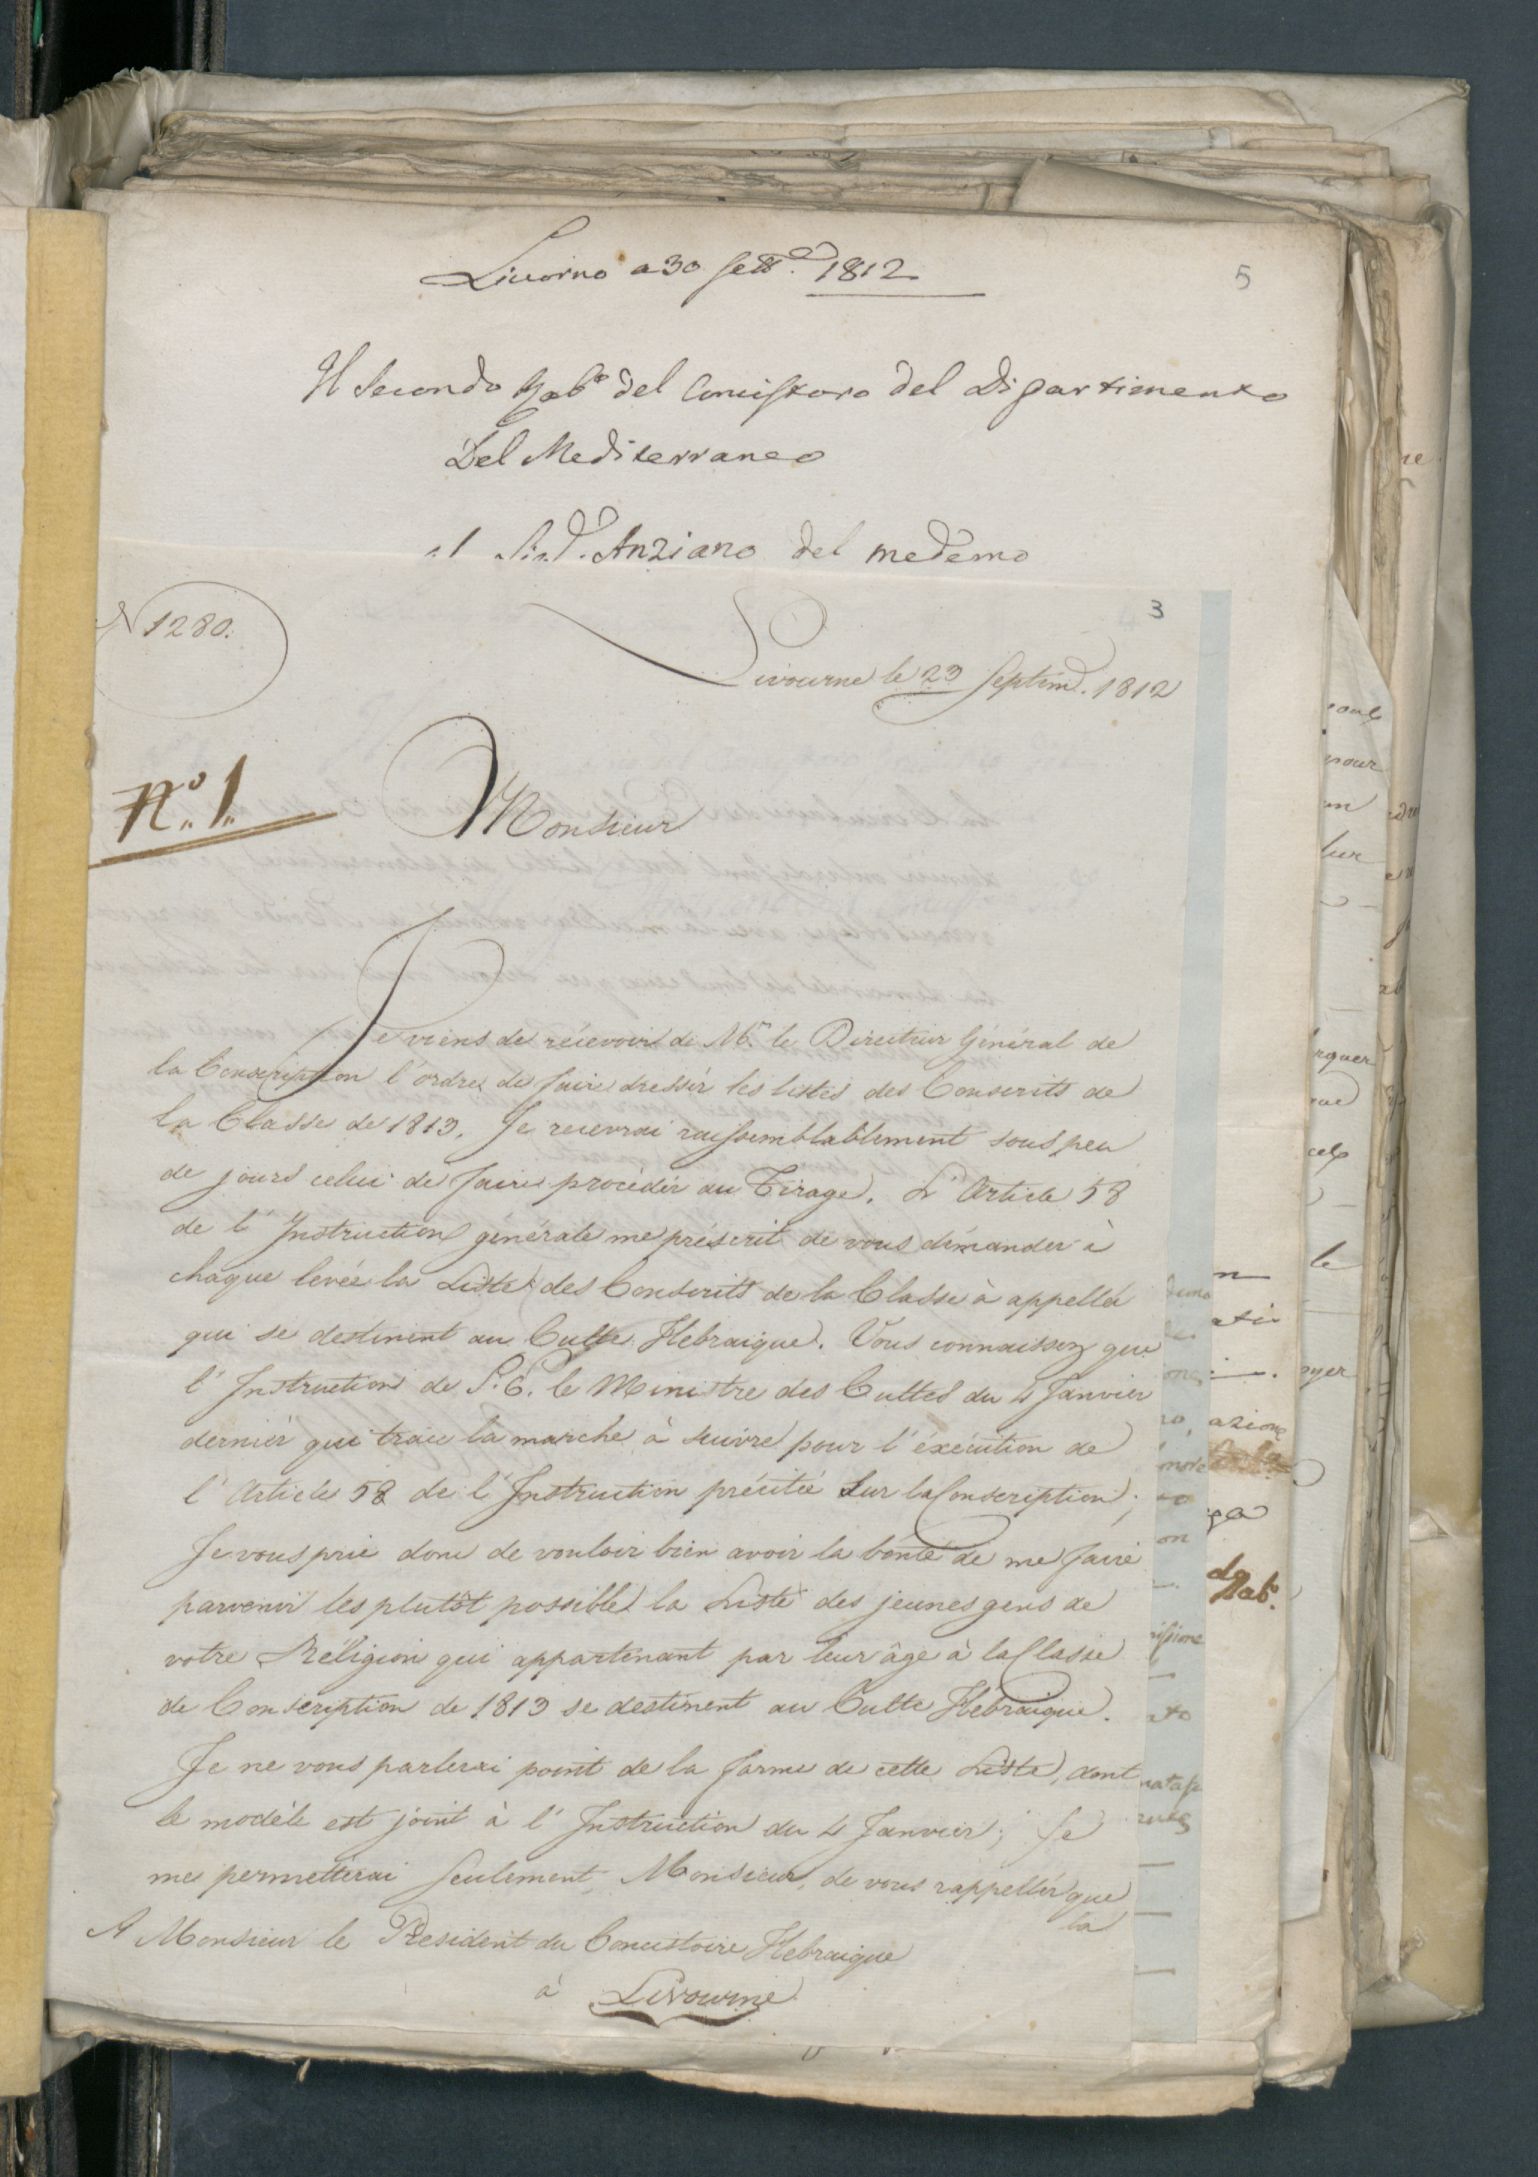 5
Livorno a 30 Sett.e 1812
Il Secondo Rab.o del Concistoro del Dipartimento
Del Mediterraneo
Anziano del medemo
3
N 1280.
Livourne le 23 Septem. 1812
N.o 1.
Monsieur
Je viens de récevoir de Mr. le Directeur Général de
la Conscription l'ordre de faire dressér les listes des Conscrits de
la Classe de 1813. Je recevrai vaissemblablement sous peu
de jours celui de faire procédér au Tirage. L'Article 58
de l'Instruction générale me préscrit de vous démander à
chaque levée la Liste des Conscrits de la Classe à appellér
qui se destinent au Culte Hebraique. Vous connaissez que
l'Instruction de S. E. le Ministre des Cultes du 4 Janvier
derniér qui trace la marche à suivre pour l'éxécution de
l'Article 58 de l'Instruction précitée sur la Conscription;
Je vous prie donc de vouloir bien avoir la bonté de me faire
parvenir les plutôt possible la Liste des jeunes gens de
votre Réligion qui appartenant par leur âge à la Classe
de Conscription de 1813 se destinent au Culte Hebraique.
Je ne vous parlerai point de la forme de cette Liste, dont
le modèle est joint à l'Instruction du 4 Janvier; Je
me permetterai seulement, Monsieur, de vous rappellér que
la
A Monsieur le President du Concistoire Hebraique
à Livourne
pour
lur
le
azione
Rab.o